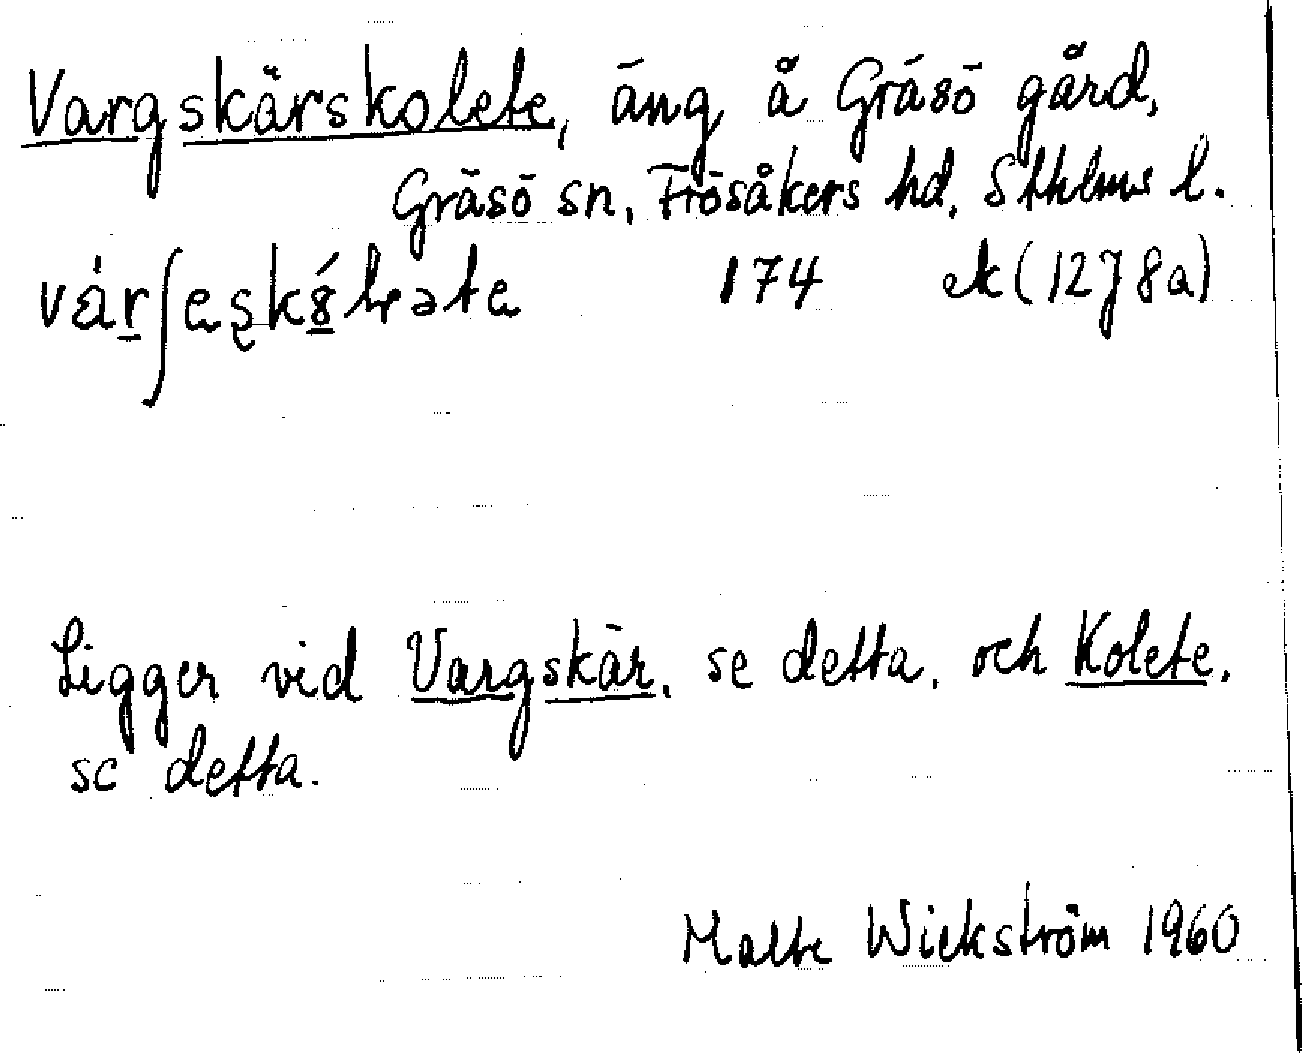 Vargskärskolete, äng å Gräsö gård,
Gräsö sn, Frösåkers hd, Sthlms l.
174 ek (1278a)
Ligger vid Vargskär, se detta, och Kolete,
se detta.
Malte Wickström 1960